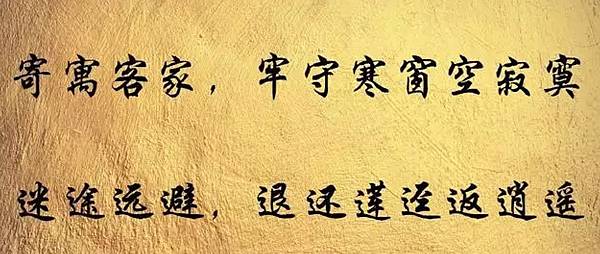 寄寓客家，牢守寒窗空寂寞
迷途远避，退还莲迳返逍遥